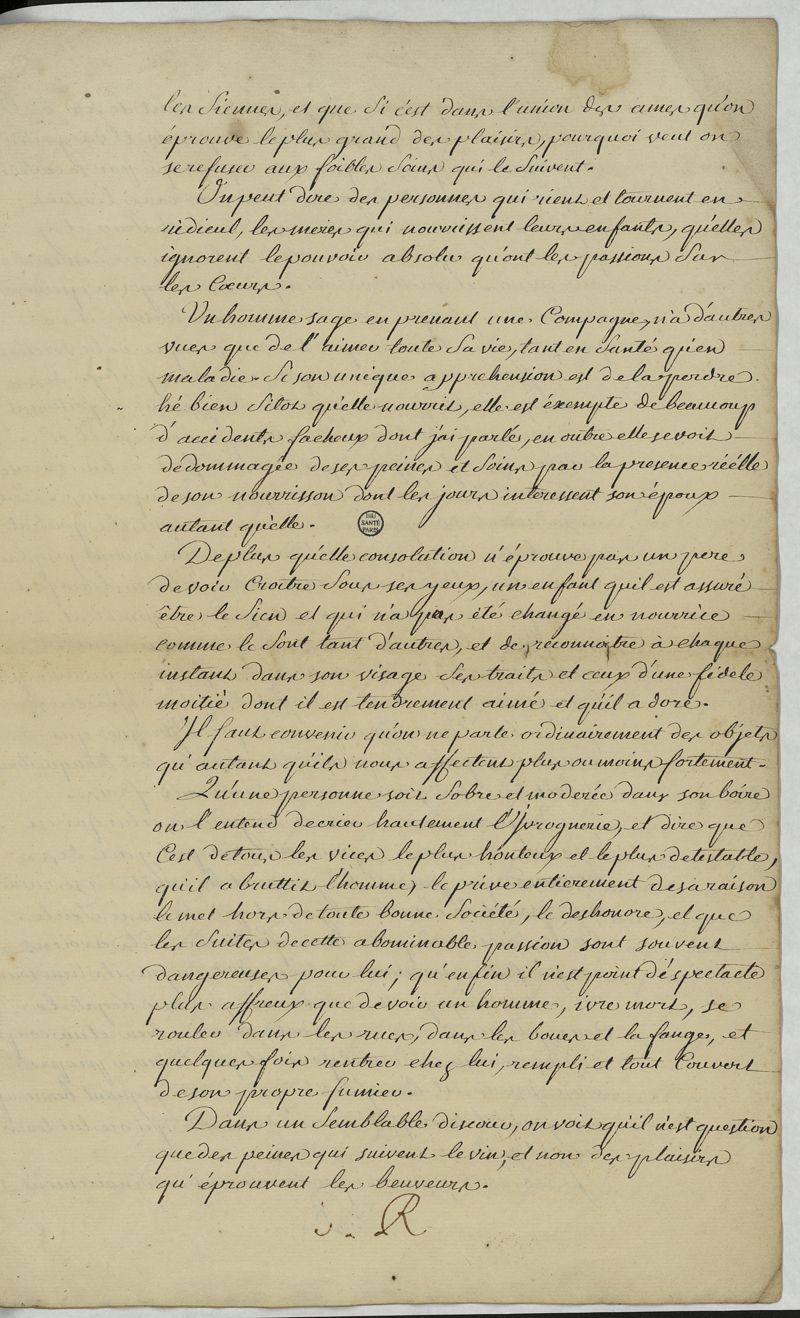 les Siennes, et que Si c'est dans l'union des ames qu'on
éprouve le plus grand des plaisirs, pourquoi veut on
se refuser aux foibles Soins qui le Suivent.
On peut dire des personnes qui rient et tournent en
ridicul, les meres qui nourrissent leurs enfants, qu'elles
ignorent le pouvoir absolu qu'ont les passions Sur
les Cœurs.
Un homme sage en prenant une Compagne, n'a d'autres
vues que de l'aimer toute Sa vie, tant en Santé qu'en
maladie. Si son unique appréhension est de la perdre.
hé bien Sitot qu'elle nourrit, elle est éxempte de beaucoup
d'accidents facheux dont j'ai parlé, en outre elle se voit
dedommagée de ses peines et Soins par la presence réélle
de son nourrisson dont les jours interessent son époux
autant qu'elle.
BIU
SANTÉ
PARIS
De plus qu'elle consolation n'éprouve pas un pere
de voir Croitre Sous ses yeux, un enfant quil est assuré
être le Sien et qui n'a pas été changé en nourrice
comme le Sont tant d'autres, et de reconnaitre à chaque
instant dans son visage Ses traits et ceux d'une fidele
moitié dont il est tendrement aimé et qu'il adore.
Il faut convenir qu'on ne parle ordinairement des objets
qu'autant qu'ils nous affectent plus ou moins fortement.
Qu'une personne soit Sobre et moderée dans son boire
on l'entend decrier hautement l'Ivrognerie, et dire que
C'est de tous les vices le plus honteux et le plus detestable,
qu'il abruttit l'homme, le prive entierement de sa raison
le met hors de toute bonne Société, le deshonore, et que
les Suites de cette abominable passion sont souvent
dangereuses pour lui; qu'enfin il n'est point de spectacle
plus affreux que de voir un homme, ivre mort, se
rouler dans les rues, dans les boues et la fange, et
quelques fois rentrer chez lui, rempli et tout Couvert
de son propre fumier.
Dans un Semblable discour, on voit qu'il n'est question
que des peines qui suivent le vin, et non des plaisirs
qu'éprouvent les beuveurs.
R